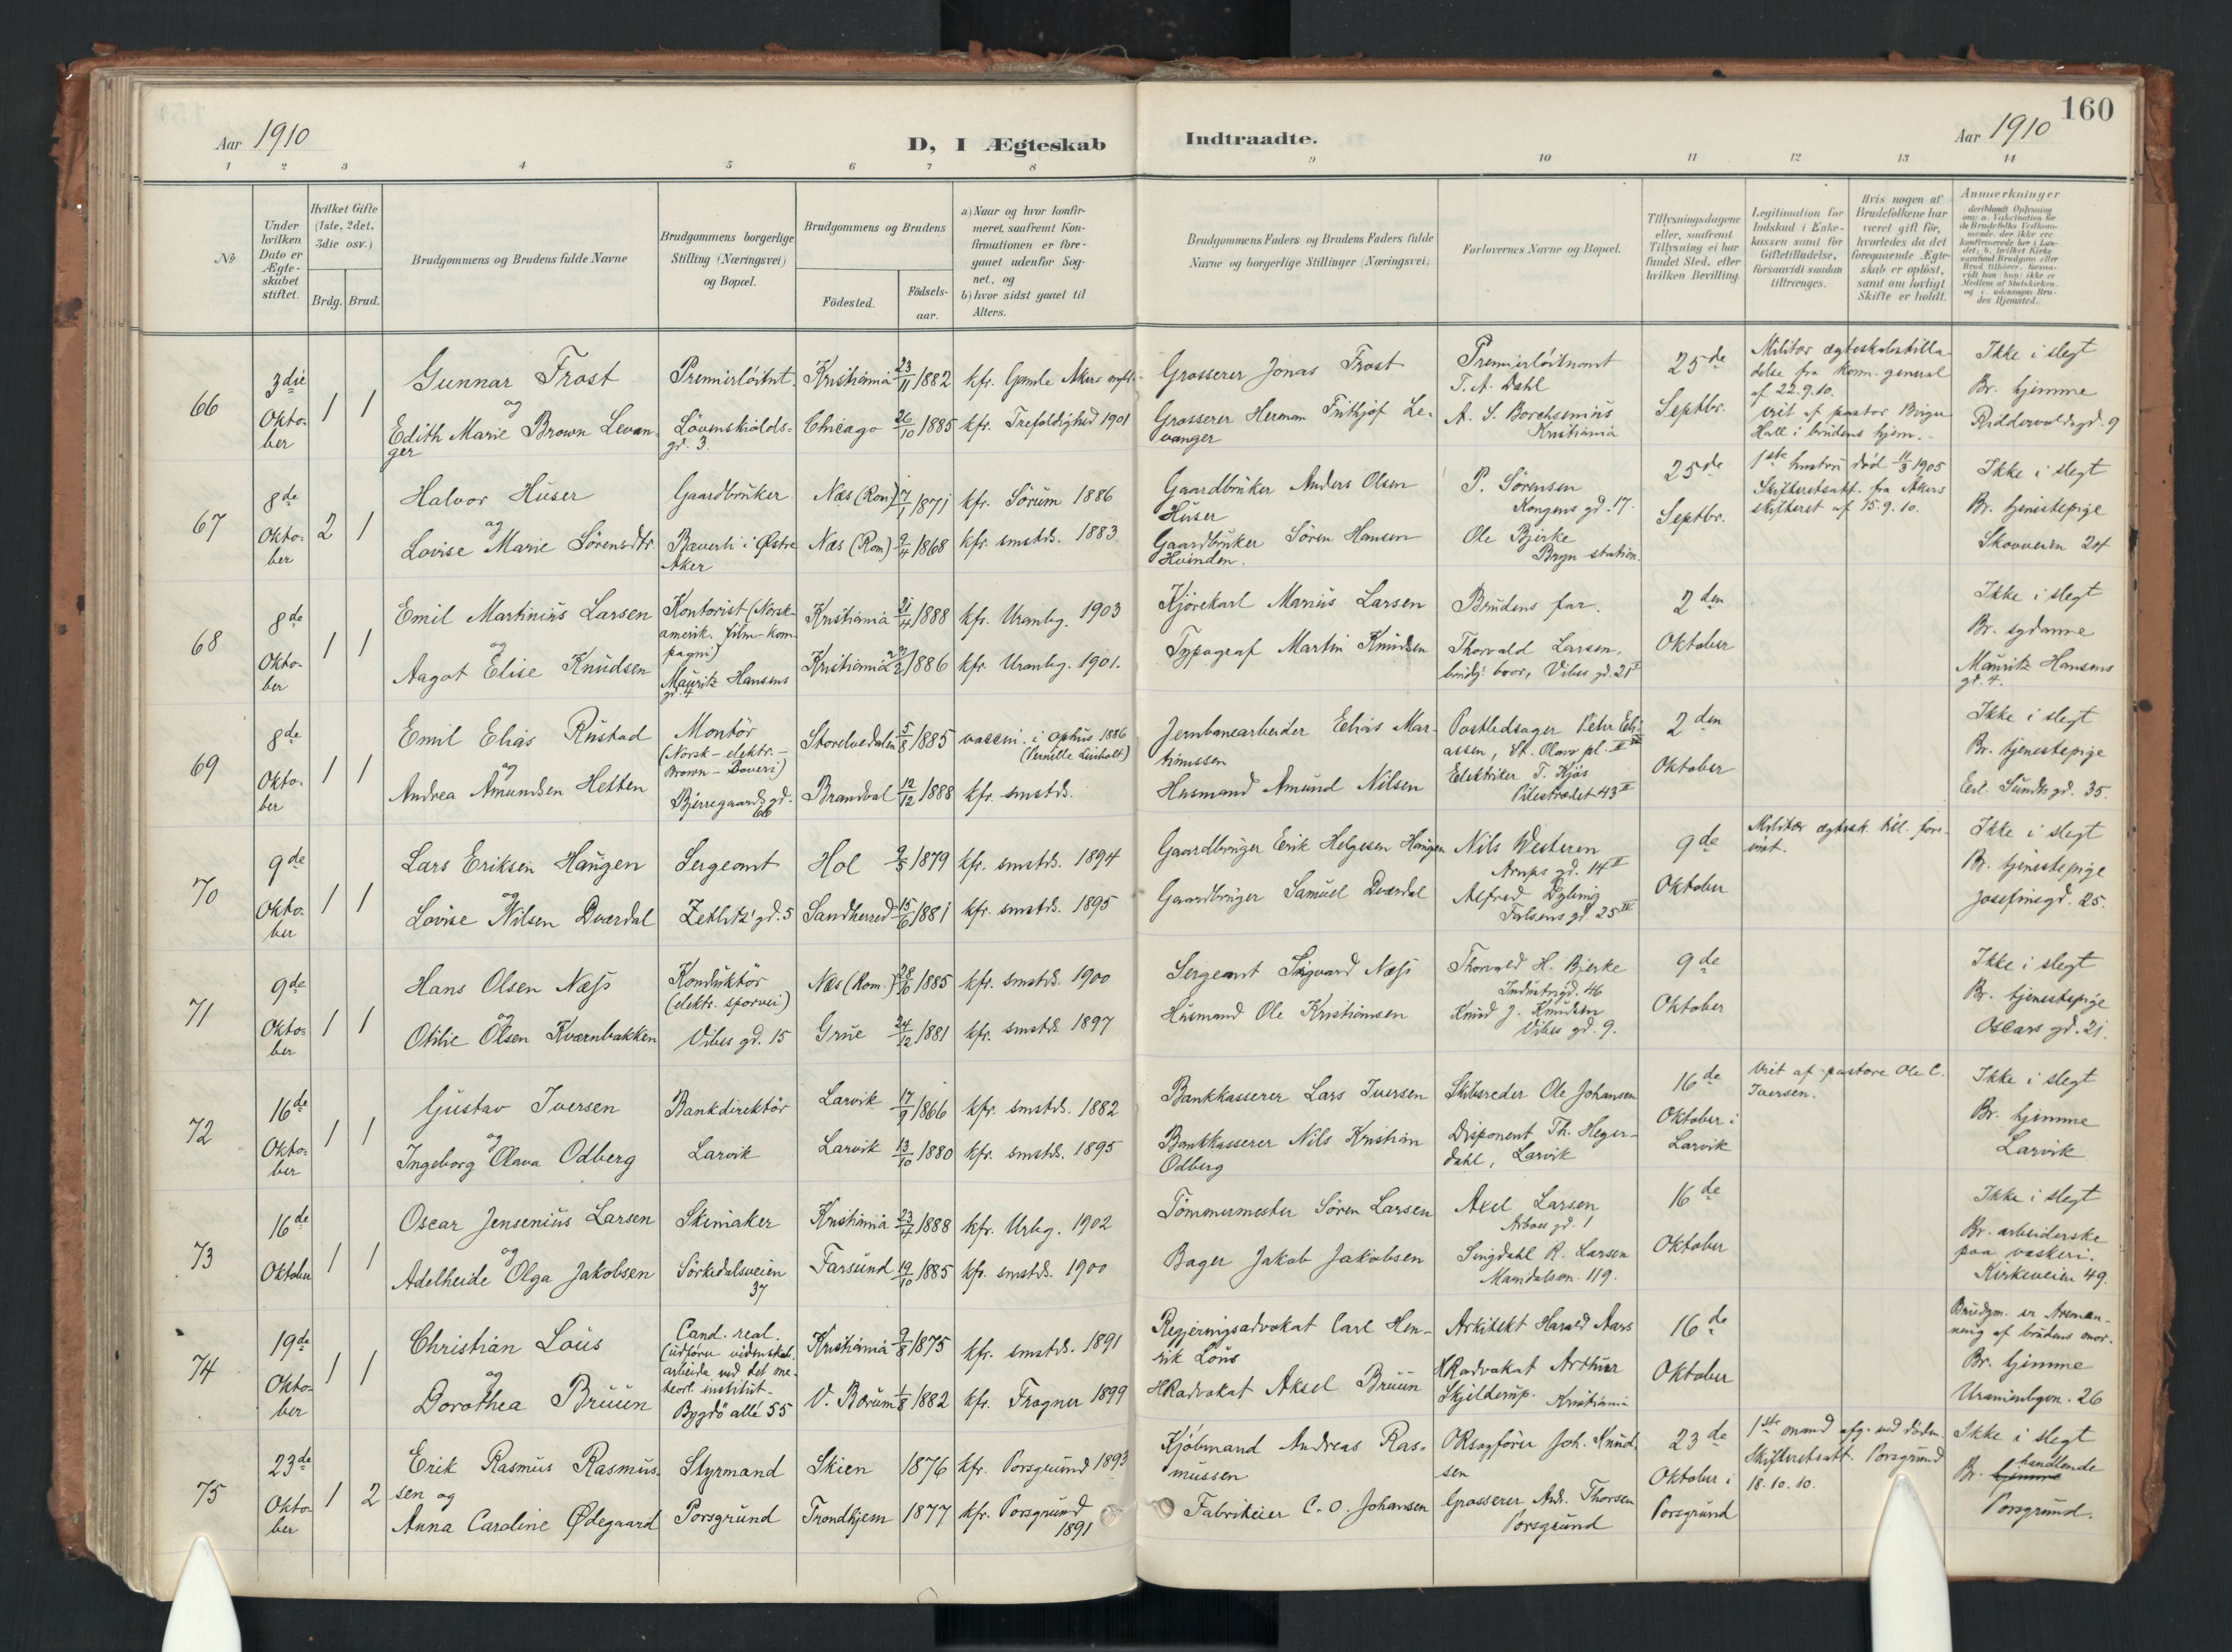 160
Aar 1910
D, I Ægteskab Indtraadte.
Aar 1910
1 2 3 4 5 6 7 8 9 10 11 12 13 14
No
Under hvilken Dato er Ægteskabet stiftet.
Hvilket Gifte (1ste, 2det, 3die osv.)
Brdg. Brud.
Brudgommens og Brudens fulde Navne
Brudgommens borgerlige Stilling (Næringsvei) og Bopæl.
Brudgommens og Brudens
Födested.
Födsels-aar.
a) Naar og hvor konfirmeret, saafremt Konfirmationen er foregaaet udenfor Sognet, og
b) hvor sidst gaaet til Alters.
Brudgommens Faders og Brudens Faders fulde Navne og borgerlige Stillinger (Næringsvei)
Forlovernes Navne og Bopæl.
Tillysningsdagene eller, saafremt Tillysning ei har fundet Sted, efter hvilken Bevilling.
Legitimation for Indskud i Enkekassen samt for Giftetilladelse, forsaavidt saadan tiltrænges.
Hvis nogen af Brudefolkene har været gift för, hvorledes da det foregaaende Ægteskab er oplöst, samt om lovligt Skifte er holdt.
Anmærkninger
66
3die Oktober
1 1
Gunnar Frost
og
Edith Marie Brown Levanger
Premierlöitnt.
Lövenskiolds-gd. 3.
Kristiania 23/11 1882 kfr. Gamle Akers
Chicago 26/10 1885 kfr. Trefoldighed 1901
Grosserer Jonas Frost
Grosserer Herman Frithjof Levanger
Premierlöitnant T. A. Dahl
A. S. Borchsenius
Kristiania
25de Septbr.
Militær ægteskabstilladelse fra Kom. general af 22.9.10.
viet af pastor Birger Hall i brudens hjem.
Ikke i slegt
Br. hjemme
Riddervoldsgd. 9
67
8de Oktober
2 1
Halvor Huser
og
Lovise Marie Sörensdtr.
Gaardbruker
i Østre Aker
Næs (Rom.) 1871 kfr. Sörum 1886
Næs (Rom) 9/4 1868 kfr. smstds. 1883
Gaardbruker Anders Olsen Huser
Gaardbruker Sören Hansen Hvinden.
P. Sörensen
Kongens gd. 17.
Ole Bjerke
Bryn station.
25de Septbr.
1ste hustru död 11/3 1905
Skifteretsatt. fra Akers skifteret af 15.9.10.
Ikke i slegt
Br. tjenestepige
Skovveien 24
68
8de Oktober
1 1
Emil Martinius Larsen
og
Aagot Elise Knudsen
Kontorist (Norsk-amerik. film-kompagni)
Mauritz Hansens gd. 4
Kristiania 21/4 1888 kfr. Uranbg. 1903
Kristiania 1886 kfr. Uranbg. 1901.
Kjörekarl Marius Larsen
Typograf Martin Knudsen
Brudens far.
Thorvald Larsen,
Vibes gd. 21
2den Oktober
Ikke i slegt
Br. sydame
Mauritz Hansens gd. 4.
69
8de Oktober
1 1
Emil Elias Rustad
og
Andrea Amundsen Hetten
Montör
(Norsk-elektr.-Brown-Boveri)
Bjerregaards gd. 66
Storelvedalen 5/8 1885 vaccin. i Ophus 1886
Brandval 12/12 1888 kfr. smstds.
Jernbanearbeider Elias Martinussen
Husmand Amund Nilsen
Postledsager Peter Eliassen, St. Olavs pl.
Elektriker T. Kjös
Pilestrædet 43 II
2den Oktober
Ikke i slegt
Br. tjenestepige
Eil. Sundts gd. 35.
70
9de Oktober
1 1
Lars Eriksen Haugen
og
Lovise Nilsen Dværdal
Sergeant
Zetlitz' gd. 5
Hol 9/5 1879 kfr. smstds. 1894
Sandherred 15/6 1881 kfr. smstds. 1895
Gaardbruger Erik Helgesen Haugen
Gaardbruger Samuel Dværdal
Nils Westeren
Arups gd. 14 II
Alfred Dybing
Falsens gd. 25
9de Oktober
Militær ægtesk. till. forevist.
Ikke i slegt
Br. tjenestepige
Josefinesgd. 25.
71
9de Oktober
1 1
Hans Olsen Næss
og
Otilie Olsen Kværnbakken
Konduktör
(elektr. sporvei)
Vibes gd. 15
Næs (Rom.) 1885 kfr. smstds. 1900
Grue 24/12 1881 kfr. smstds. 1897
Sergeant Sigvard Næss
Husmand Ole Kristiansen
Thorvald H. Bjerke
Industrigd. 46
Knud J. Knudsen
Vibes gd. 9.
9de Oktober
Ikke i slegt
Br. tjenestepige
Oscars gd. 21.
72
16de Oktober
1 1
Gustav Iversen
og
Ingeborg Olava Odberg
Bankdirektör
Larvik
Larvik 17/9 1866 kfr. smstds. 1882
Larvik 13/10 1880 kfr. smstds. 1895
Bankkasserer Lars Iversen
Bankkasserer Nils Kristian Odberg
Skibsreder Ole Johansen
Disponent Th. Hegerdahl, Larvik
16de Oktober i Larvik
Viet af pastor Ole C. Iversen.
Ikke i slegt
Br. hjemme
Larvik
73
16de Oktober
1 1
Oscar Jensenius Larsen
og
Adelheide Olga Jakobsen
Skimaker
Sörkedalsveien 37
Kristiania 1888 kfr. Urbg. 1902
Farsund 19/10 1885 kfr. smstds. 1900
Tömmermester Sören Larsen
Bager Jakob Jakobsen
Axel Larsen
Arbos gd. 1
R. Larsen
119.
16de Oktober
Ikke i slegt
Br. arbeiderske paa vaskeri.
Kirkeveien 49.
74
19de Oktober
1 1
Christian Lous
og
Dorothea Bruun
Cand. real.
(udförer videnskab. arbeide ved det meteorl. institut.
Bygdö allé 55
Kristiania 9/8 1875 kfr. smstds. 1891
V. Bærum 1/8 1882 kfr. Frogner 1899
Regjeringsadvokat Carl Henrik Lous
HRadvokat Aksel Bruun
Arkitekt Harald Aars
HRadvokat Arthur Skjelderup. Kristiania
16de Oktober
Brudgm. er
af brudens mor.
Br. hjemme
Uranienbgvn. 26
75
23de Oktober
1 2
Erik Rasmus Rasmussen og
Anna Caroline Ødegaard
Styrmand
Porsgrund
Skien 1876 kfr. Porsgrund 1893
Trondhjem 1877 kfr. Porsgrund 1891
Kjöbmand Andreas Rasmussen
Fabrikeier C. O. Johansen
ORsagförer Joh. Knudsen
Grosserer And. Thorsen
Porsgrund
23de Oktober i Porsgrund
1ste mand afg. ved döden.
Skifteretsatt. Porsgrund 18.10.10.
Ikke i slegt
Br. handlende
Porsgrund.